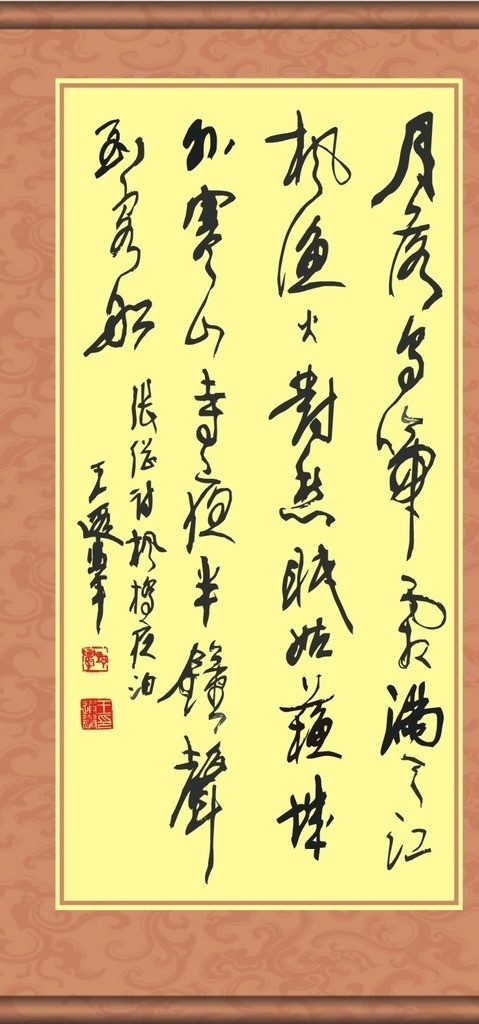 月落乌啼霜满天江
枫渔火對愁眠姑蘇城
外寒山寺夜半鐘聲
到客船
张继诗枫桥夜泊
王遐举